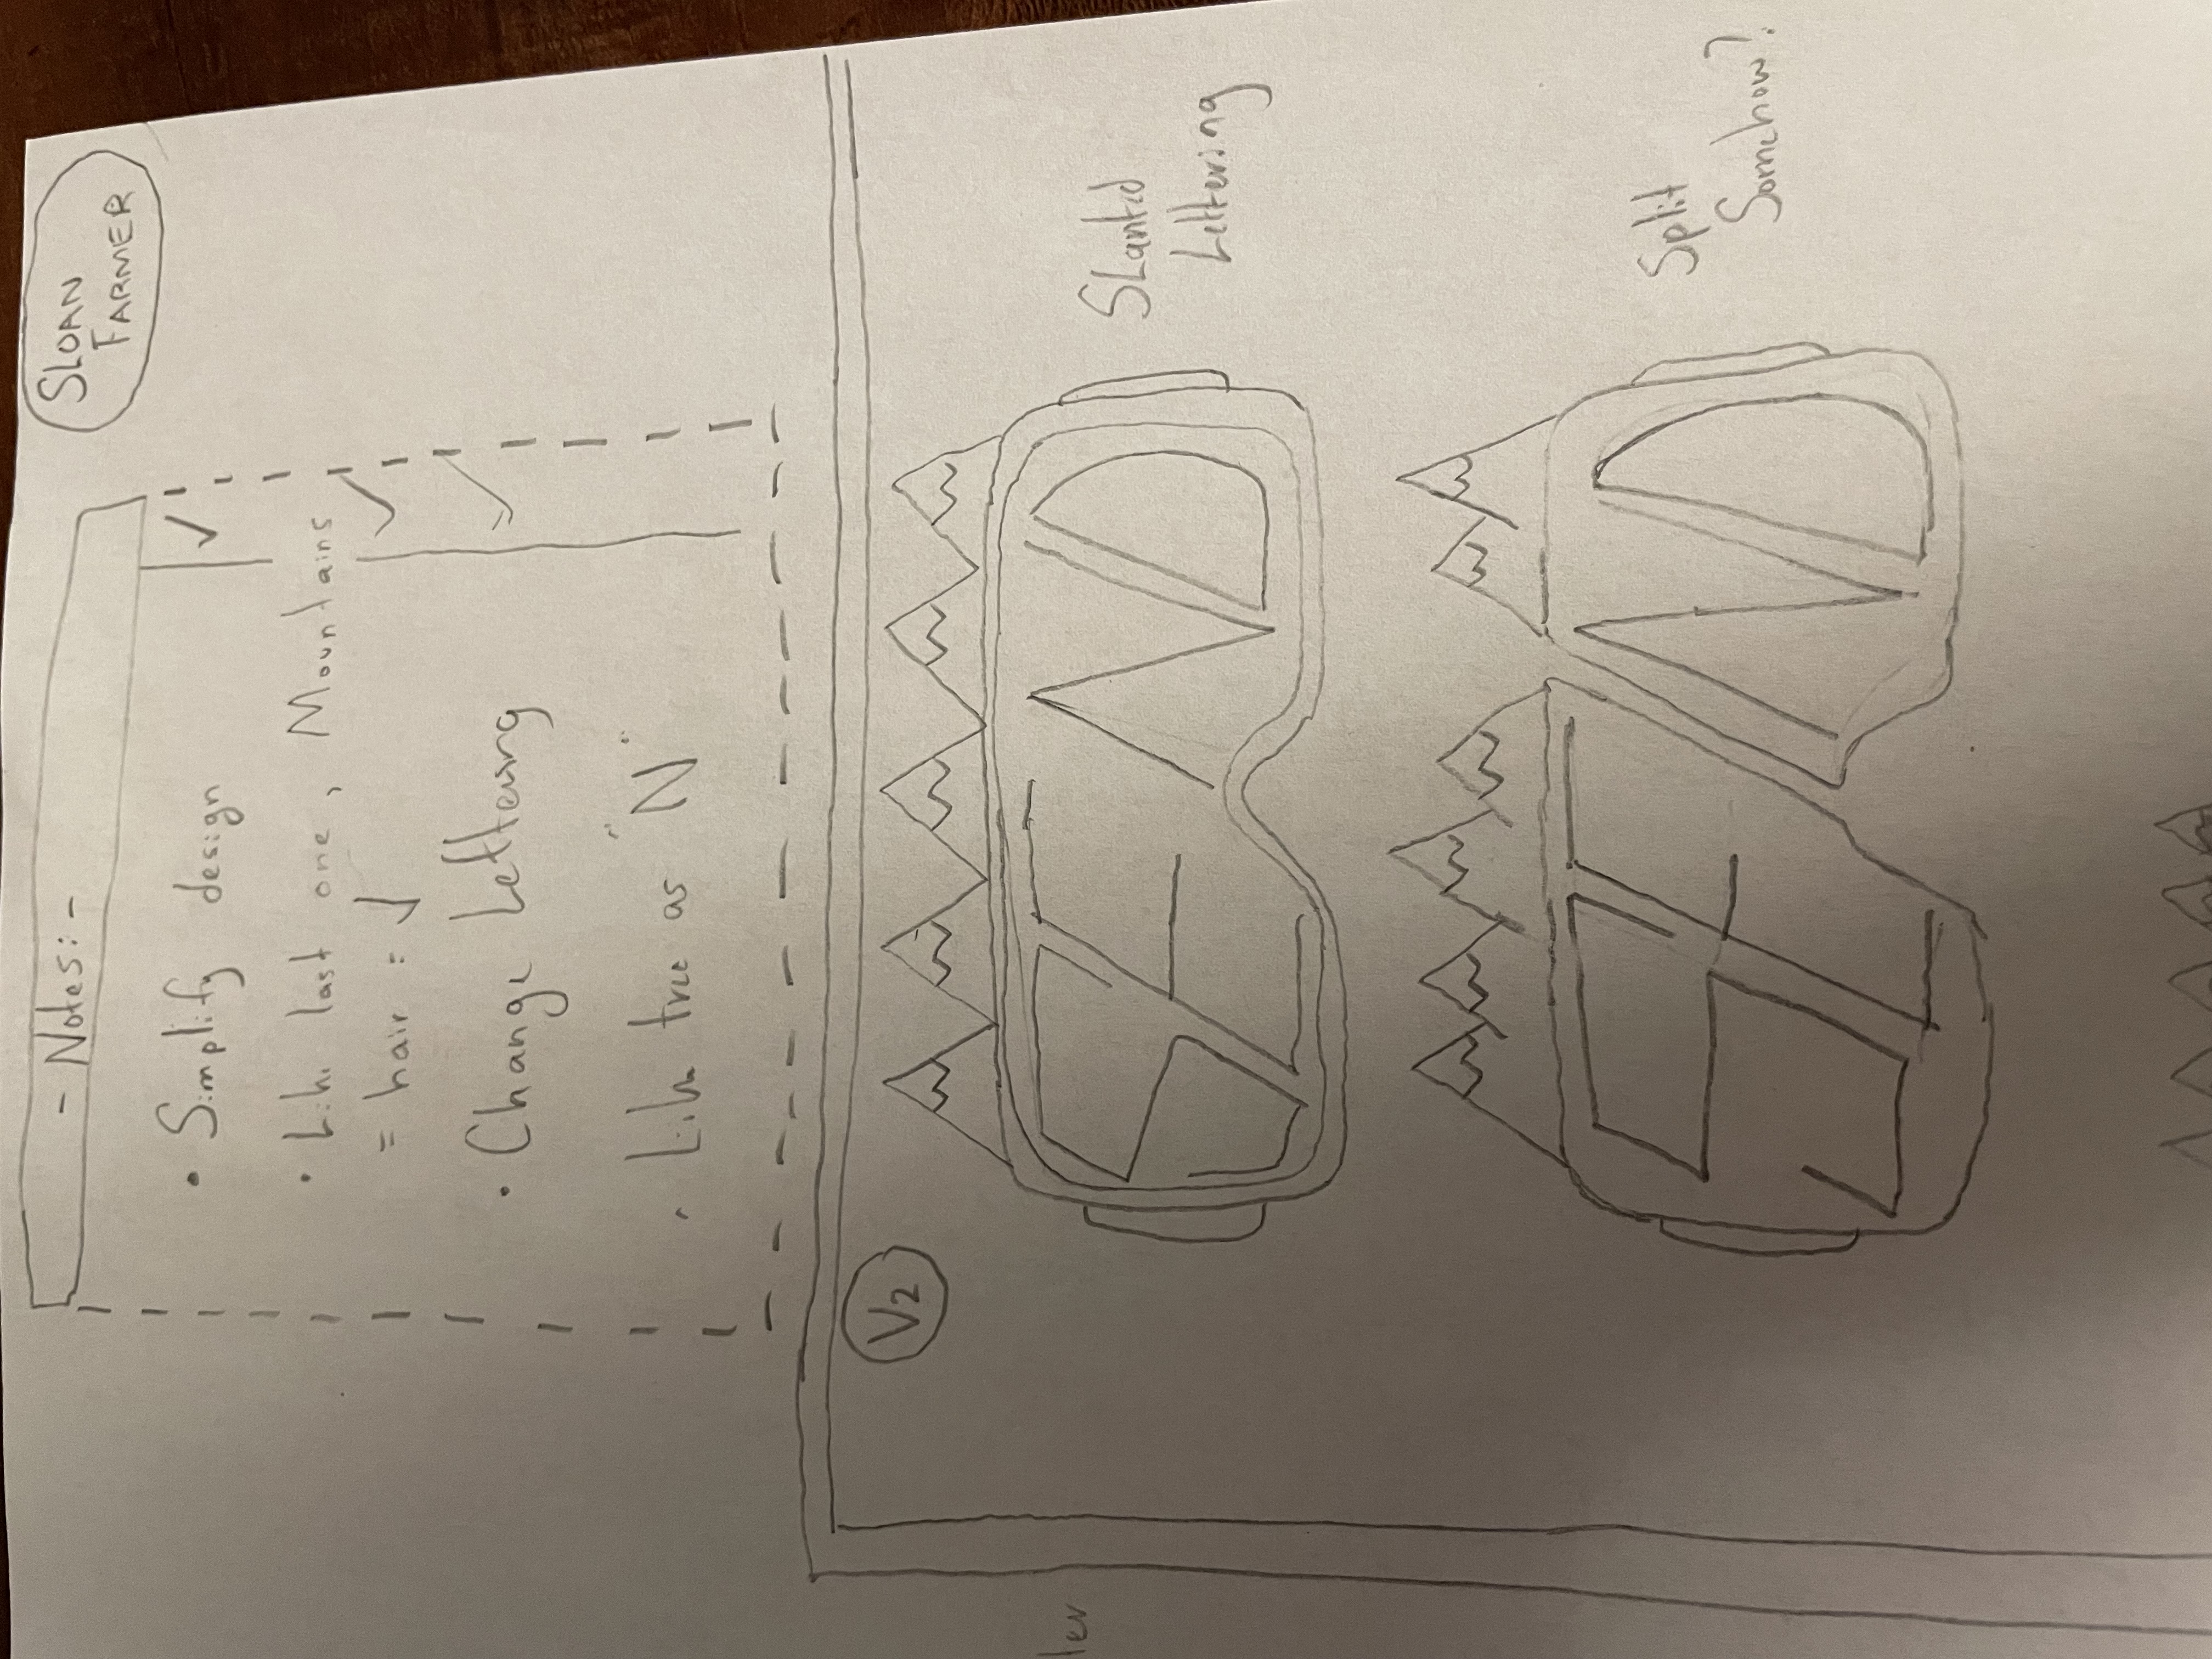 - Notes: -
SLOAN
FARMER
• Simplify design ✓
• Like last one, Mountains
= hair = ✓ ✓
• Change Lettering ✓
• Like tree as "N"
V2
SEND
SLanted
Lettering
SEND
Split
Somehow?